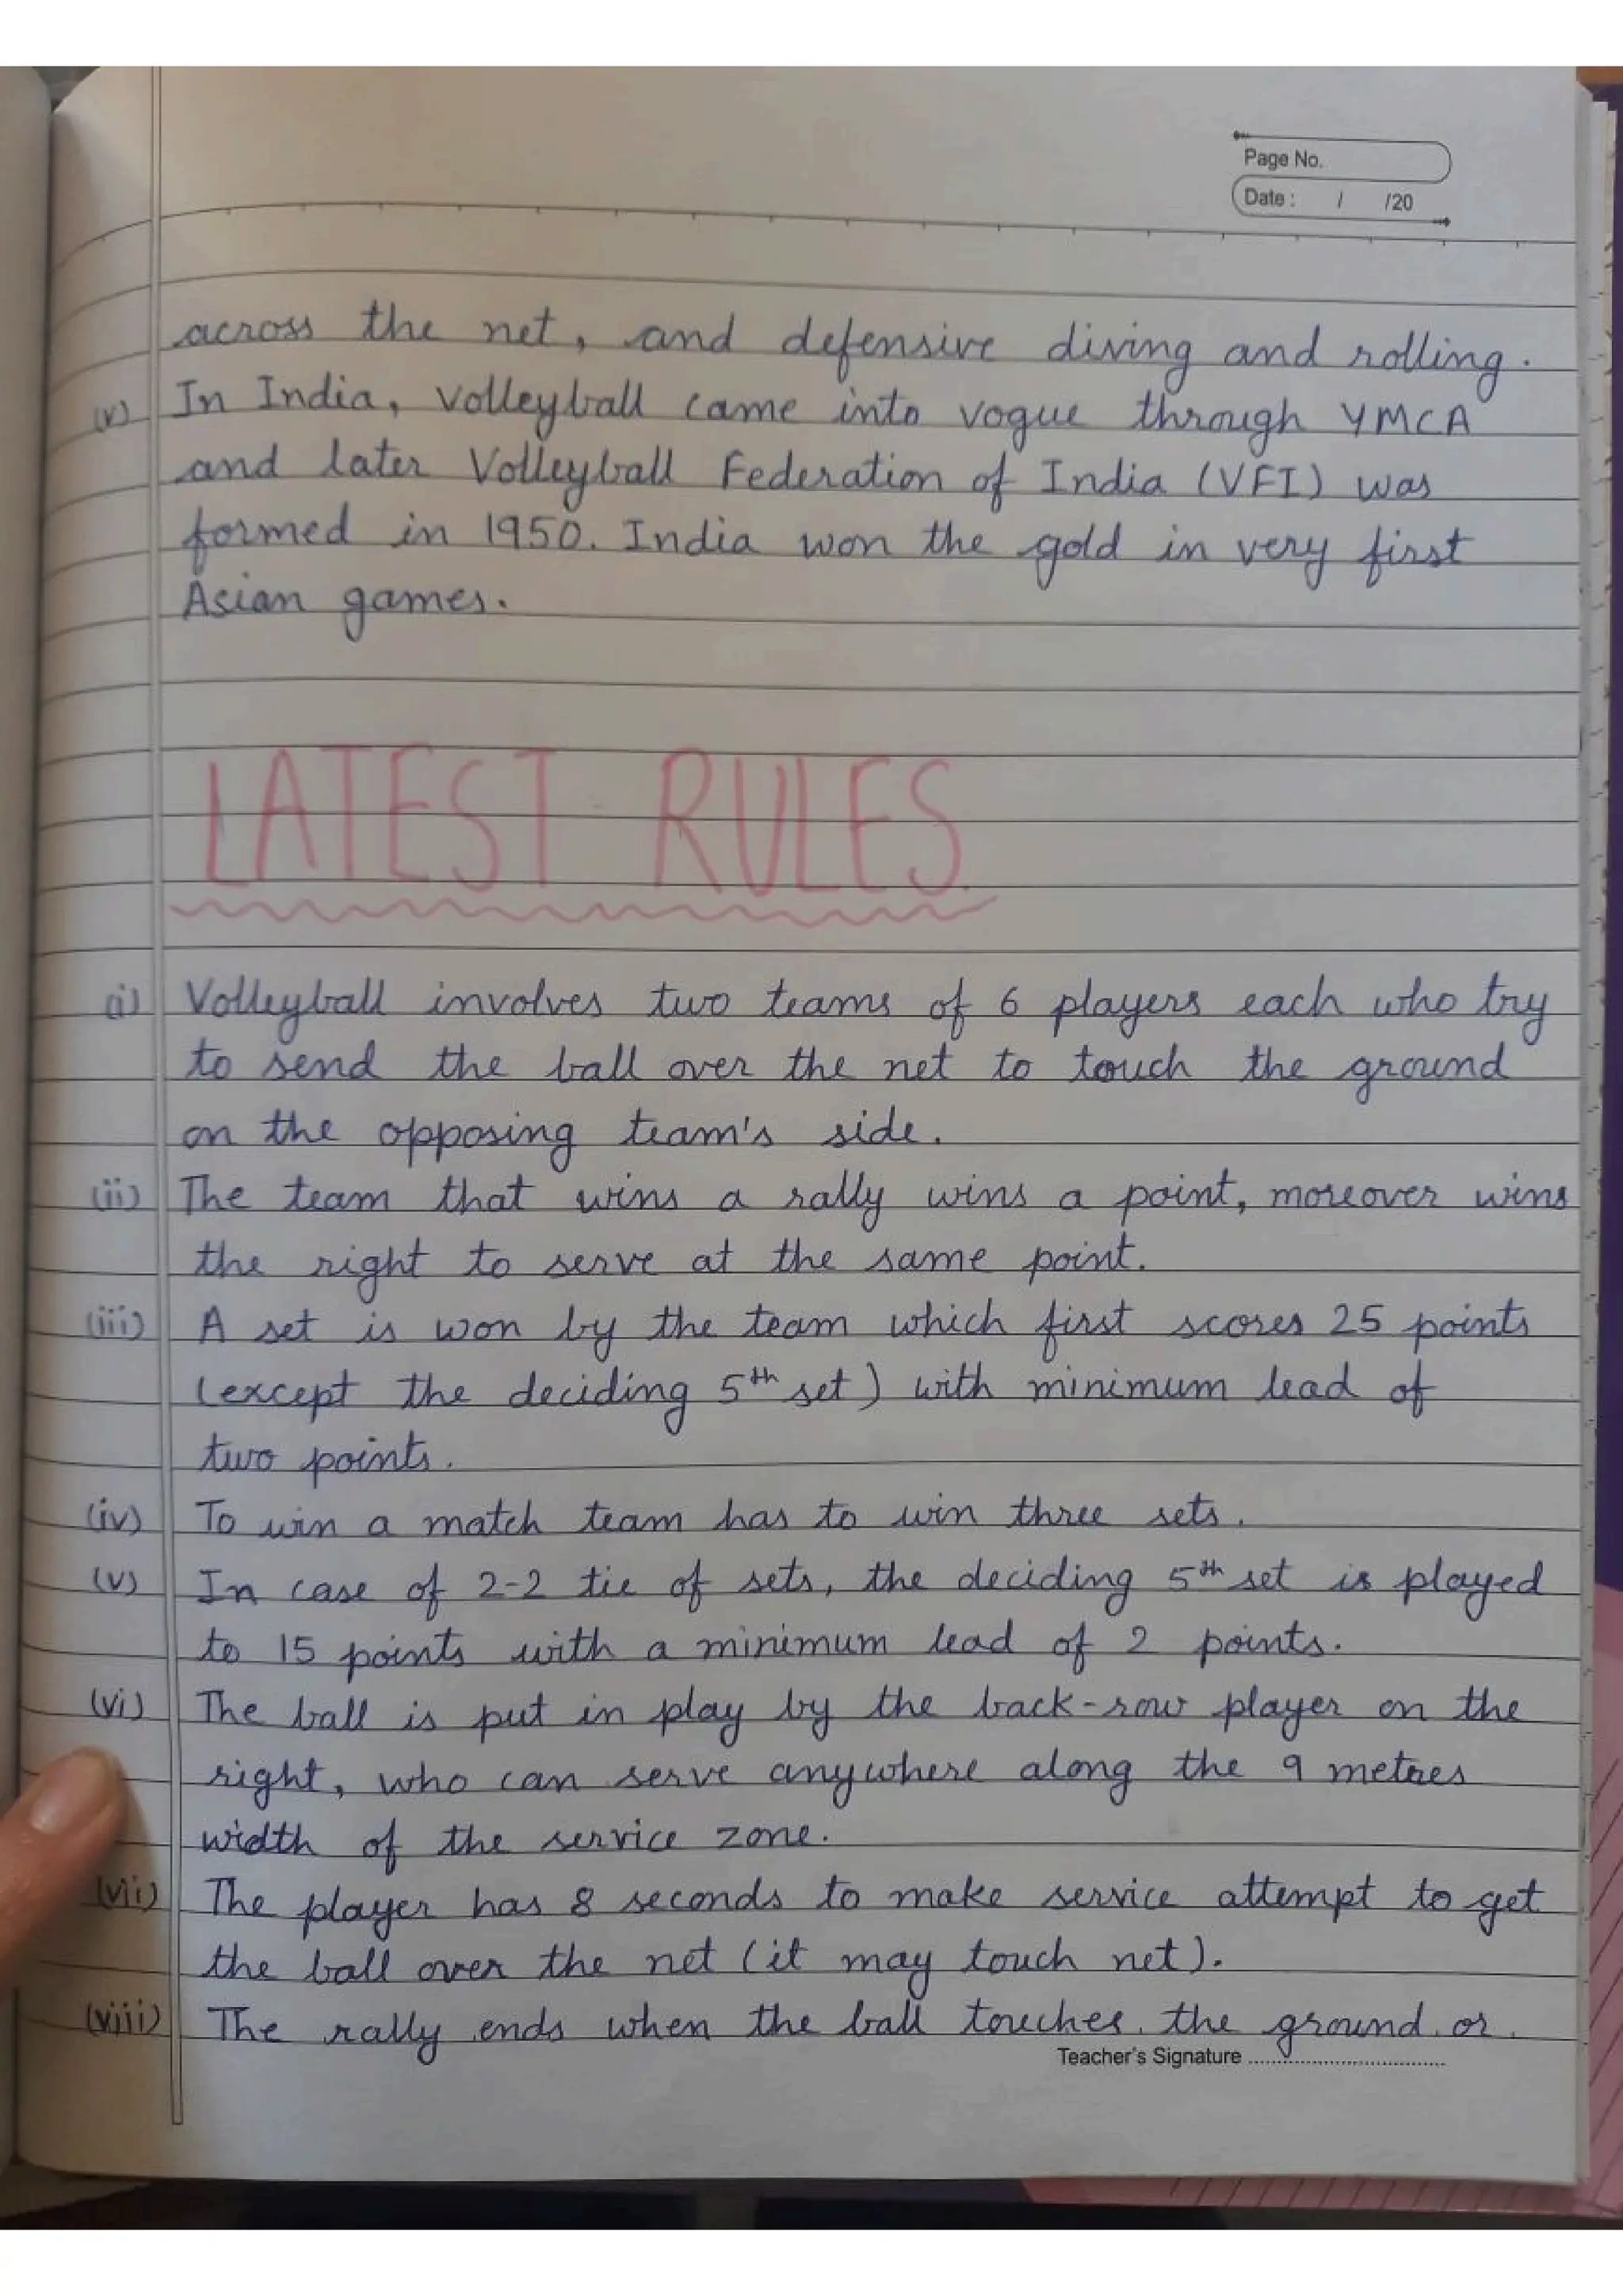 Page No.
Date : / /20
across the net, and defensive diving and rolling.
(v) In India, Volleyball came into vogue through YMCA
and later Volleyball Federation of India (VFI) was
formed in 1950. India won the gold in very first
Asian games.
LATEST RULES.
(i) Volleyball involves two teams of 6 players each who try
to send the ball over the net to touch the ground
on the opposing team's side.
(ii) The team that wins a rally wins a point, moreover wins
the right to serve at the same point.
(iii) A set is won by the team which first scores 25 points
(except the deciding 5th set) with minimum lead of
two points.
(iv) To win a match team has to win three sets.
(v) In case of 2-2 tie of sets, the deciding 5th set is played
to 15 points with a minimum lead of 2 points.
(vi) The ball is put in play by the back-row player on the
right, who can serve anywhere along the 9 metres
width of the service zone.
(vii) The player has 8 seconds to make service attempt to get
the ball over the net (it may touch net).
(viii) The rally ends when the ball touches the ground or
Teacher's Signature ....................................